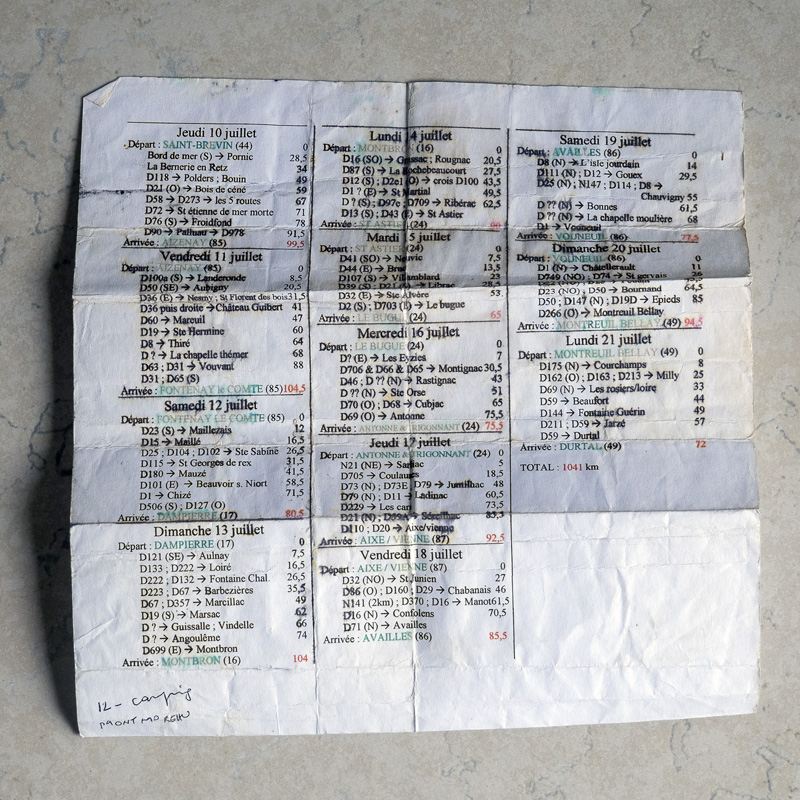 Jeudi 10 juillet
Départ : SAINT-BREVIN (44) 0
Bord de mer (S) → Pornic 28,5
La Bernerie en Retz 34
D118 → Polders ; Bouin 49
D21 (O) → Bois de céné 59
D58 → D273 → les 5 routes 67
D72 → St étienne de mer morte 71
D76 (S) → Froidfond 78
D90 → Palluau → D978 91,5
Arrivée : AIZENAY (85) 99,5
Vendredi 11 juillet
Départ : AIZENAY (85) 0
D100a (S) → Landeronde 8,5
D50 (SE) → Aubigny 20,5
D36 (E) → Nesmy ; St Florent des bois 31,5
D36 puis droite → Château Guibert 41
D60 → Mareuil 47
D19 → Ste Hermine 60
D8 → Thiré 64
D ? → La chapelle thémer 68
D63 ; D31 → Vouvant 88
D31 ; D65 (S)
Arrivée : FONTENAY le COMTE (85) 104,5
Samedi 12 juillet
Départ : FONTENAY LE COMTE (85) 0
D23 (S) → Maillezais 12
D15 → Maillé 16,5
D25 ; D104 ; D102 → Ste Sabine 26,5
D115 → St Georges de rex 31,5
D180 → Mauzé 41,5
D101 (E) → Beauvoir s. Niort 58,5
D1 → Chizé 71,5
D506 (S) ; D127 (O)
Arrivée : DAMPIERRE (17) 80,5
Dimanche 13 juillet
Départ : DAMPIERRE (17) 0
D121 (SE) → Aulnay 7,5
D133 ; D222 → Loiré 16,5
D222 ; D132 → Fontaine Chal. 26,5
D223 ; D67 → Barbezières 35,5
D67 ; D357 → Marcillac 49
D19 (S) → Marsac 62
D ? → Guissalle ; Vindelle 66
D ? → Angoulême 74
D699 (E) → Montbron
Arrivée : MONTBRON (16) 104
12 - camping
MONTMOREAU
Lundi 14 juillet
Départ : MONTBRON (16) 0
D16 (SO) → Grassac ; Rougnac 20,5
D87 (S) → La Rochebeaucourt 27,5
D12 (S) ; D2e1 (O) → crois D100 43,5
D1 ? (E) → St Martial 49,5
D ? (S) ; D97e ; D709 → Ribérac 62,5
D13 (S) ; D43 (E) → St Astier
Arrivée : ST ASTIER (24) 90
Mardi 15 juillet
Départ : ST ASTIER (24) 0
D41 (SO) → Neuvic 7,5
D44 (E) → Bruc 13,5
D107 (S) → Villamblard 23
D39 (S) ; → Librac 28,5
D32 (E) → Ste Alvère 53
D2 (S) ; D703 (E) → Le bugue
Arrivée : LE BUGUE (24) 65
Mercredi 16 juillet
Départ : LE BUGUE (24) 0
D? (E) → Les Eyzies 7
D706 & D66 & D65 → Montignac 30,5
D46 ; D ?? (N) → Rastignac 43
D ?? (N) → Ste Orse 51
D70 (O) ; D68 → Cubjac 65
D69 (O) → Antonne 75,5
Arrivée : ANTONNE & TRIGONNANT (24) 75,5
Jeudi 17 juillet
Départ : ANTONNE & TRIGONNANT (24) 0
N21 (NE) → Sarliac 5
D705 → Coulaures 18,5
D73 (N) ; D73E ; D79 → Jumilhac 48
D79 (N) ; D11 → Ladinac 60,5
D229 → Les cars 73,5
D21 (N) ; D59A → Séreilhac 83,5
D110 ; D20 → Aixe/vienne
Arrivée : AIXE / VIENNE (87) 92,5
Vendredi 18 juillet
Départ : AIXE / VIENNE (87) 0
D32 (NO) → St Junien 27
D86 (O) ; D160 ; D29 → Chabanais 46
N141 (2km) ; D370 ; D16 → Manot 61,5
D16 (N) → Confolens 70,5
D71 (N) → Availles
Arrivée : AVAILLES (86) 85,5
Samedi 19 juillet
Départ : AVAILLES (86) 0
D8 (N) → L'isle jourdain 14
D111 (N) ; D12 → Gouex 29,5
D25 (N) ; N147 ; D114 ; D8 →
Chauvigny 55
D ?? (N) → Bonnes 61,5
D ?? (N) → La chapelle moulière 68
D1 → Vouneuil
Arrivée : VOUNEUIL (86) 77,5
Dimanche 20 juillet
Départ : VOUNEUIL (86) 0
D1 (N) → Châtellerault 11
D749 (NO) ; D74 → St gervais 26
D23 (NO) ; D50 → Bournand 64,5
D50 ; D147 (N) ; D19D → Epieds 85
D266 (O) → Montreuil Bellay
Arrivée : MONTREUIL BELLAY (49) 94,5
Lundi 21 juillet
Départ : MONTREUIL BELLAY (49) 0
D175 (N) → Courchamps 8
D162 (O) ; D163 ; D213 → Milly 25
D69 (N) → Les rosiers/loire 33
D59 → Beaufort 44
D144 → Fontaine Guérin 49
D211 ; D59 → Jarzé 57
D59 → Durtal
Arrivée : DURTAL (49) 72
TOTAL : 1041 km